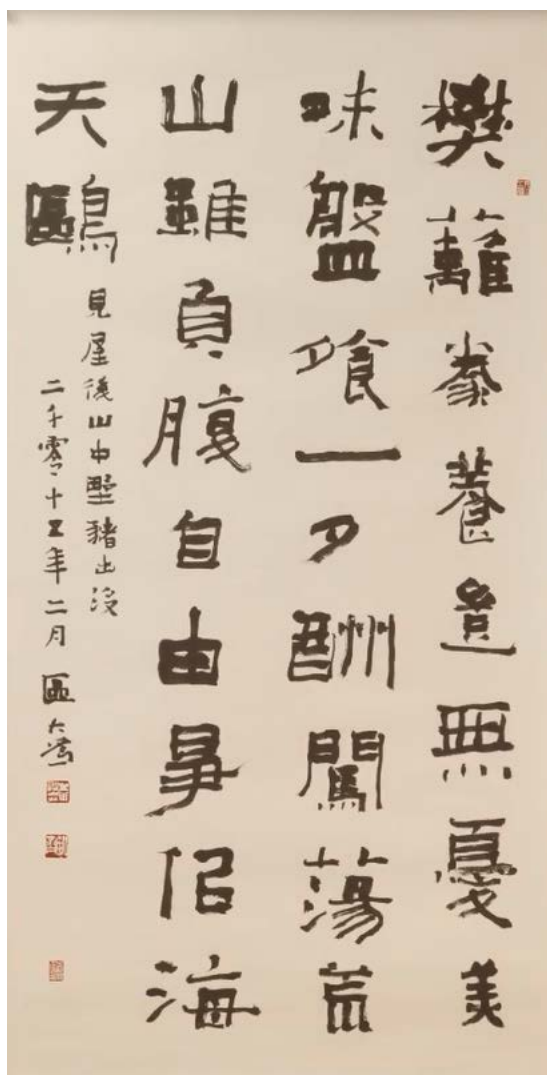 樊蘺豢養道無憂美
味盤飧一夕酬闖蕩荒
山雖負腹自由爭佀海
天鷗
見屋後山中野豬出沒
二千零十五年二月 區大為